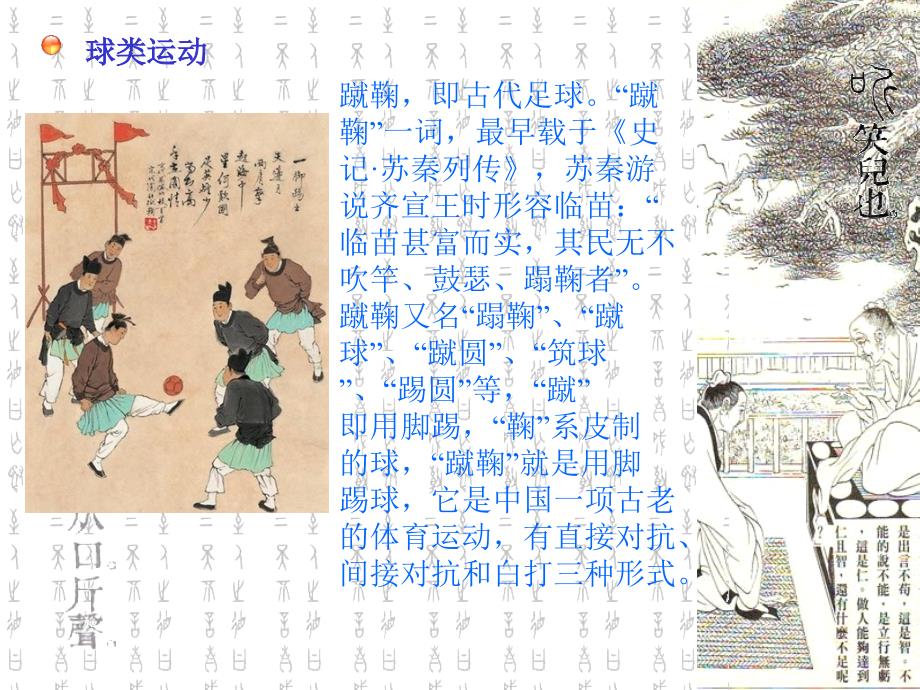 球类运动
蹴鞠，即古代足球。“蹴
鞠”一词，最早载于《史
记·苏秦列传》，苏秦游
说齐宣王时形容临苗：“
临苗甚富而实，其民无不
吹竽、鼓瑟、蹋鞠者”。
蹴鞠又名“蹋鞠”、“蹴
球”、“蹴圆”、“筑球
”、“踢圆”等，“蹴”
即用脚踢，“鞠”系皮制
的球，“蹴鞠”就是用脚
踢球，它是中国一项古老
的体育运动，有直接对抗、
间接对抗和白打三种形式。
笑兒也
是出言不苟，這是智。不
能的說不能，是立行無虧
，這是仁。做人能夠達到
仁且智，還有什麼不足呢
？